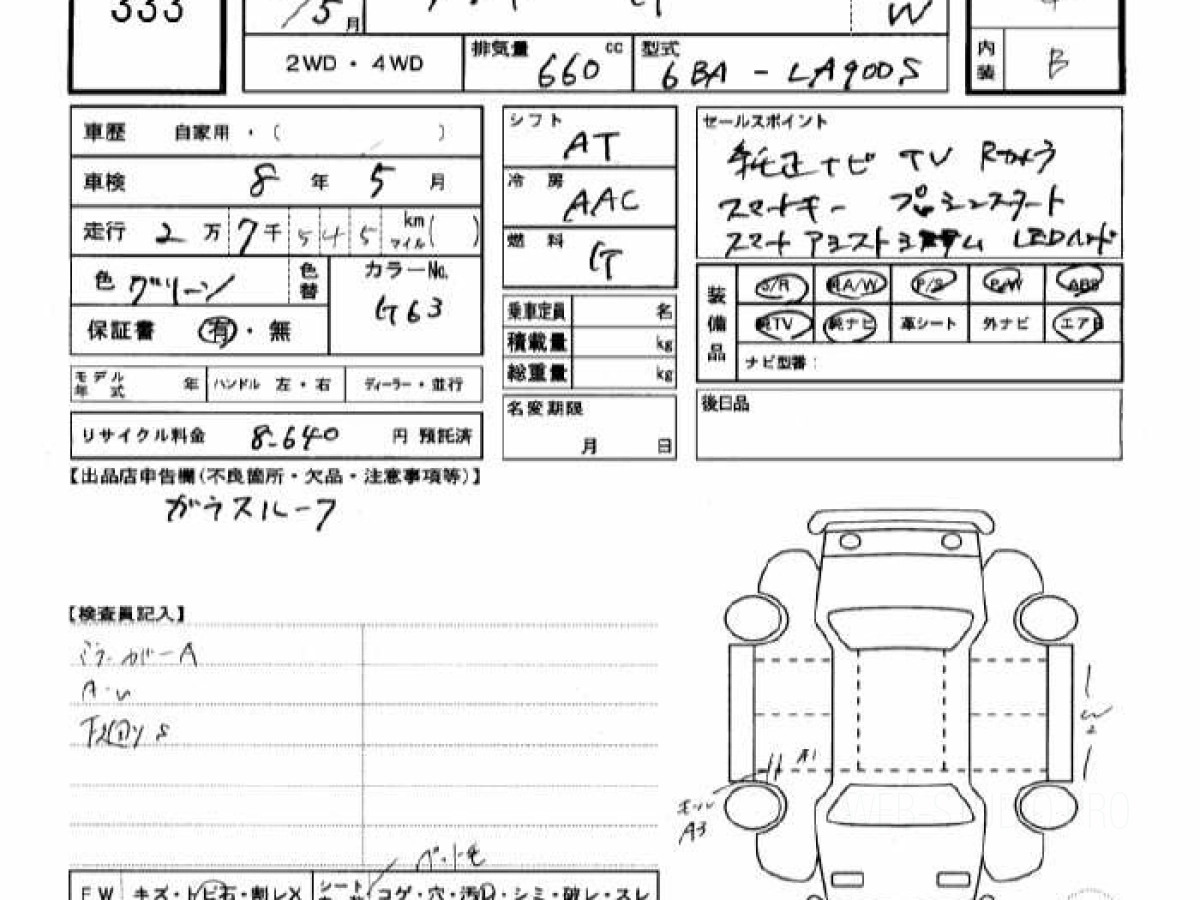 333
/5 月
W
2WD・4WD 排気量 660 cc 型式 6BA - LA900S
内装 B
車歴 自家用・( )
車検 8 年 5 月
走行 2 万 7 千 5 4 5 km マイル ( )
色 グリーン 色替
カラーNo. G63
保証書 有・無
モデル年式 年 ハンドル 左・右 ディーラー・並行
リサイクル料金 8-640 円 預託済
シフト AT
冷房 AAC
燃料 G
乗車定員 名
積載量 kg
総重量 kg
名変期限 月 日
セールスポイント
純正ナビ TV Rカメラ
スマートキー プッシュスタート
スマートアシスト LEDヘッド
装備品 S/R 純A/W P/S P/W ABS
純TV 純ナビ 革シート 外ナビ エアB
ナビ型番:
後日品
【出品店申告欄(不良箇所・欠品・注意事項等)】
ガラスルーフ
【検査員記入】
ミラーカバーA
A・U
下廻りS
A1
W2
モール
A3
ペット毛
FW キズ・トビ石・割レX シート コゲ・穴・汚レ・シミ・破レ・スレ